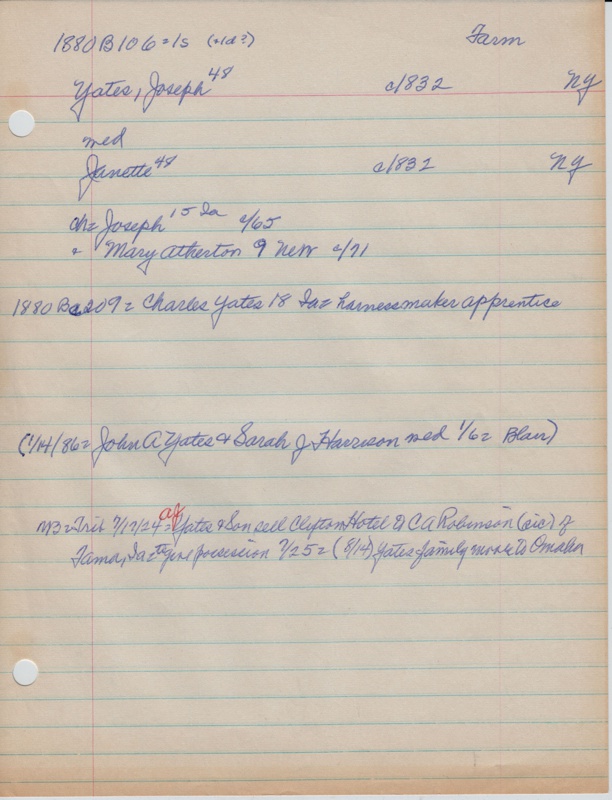 1880 B 106=1s (+1d?) Farm
Yates, Joseph 48 c/1832 NY
med
Janette 48 c/1832 NY
ch= Joseph 15 Ia c/65
+ Mary Atherton 9 New c/71
1880 B 209= Charles Yates 18 Ia= harnessmaker apprentice
(1/14/86= John A Yates & Sarah J Harrison med 1/6= Blair)
Trib 7/17/24= AJ Yates & Son sell Clifton Hotel to C A Robinson (sic) of
Tama, Ia= to give possession 7/25= (8/14) Yates family move to Omaha